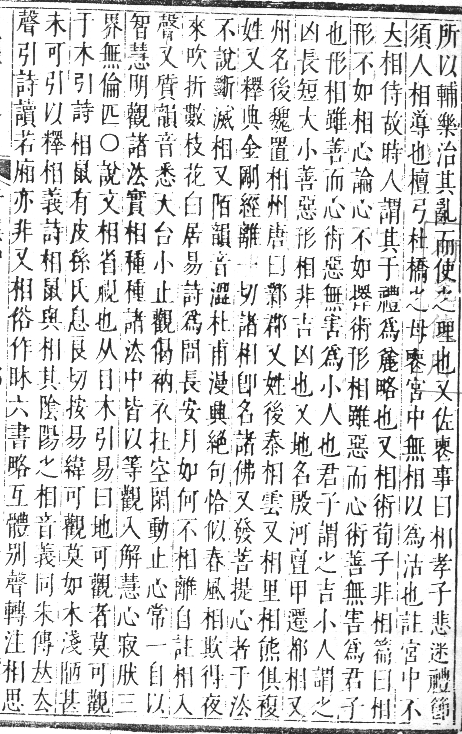 所以輔樂治其亂而使之理也又佐喪事曰相孝子悲迷禮節
須人相導也檀弓杜橋之母喪宮中無相以爲沽也註宮中不
大相侍故時人謂其于禮爲麄略也又相術荀子非相篇曰相
形不如相心論心不如擇術形相雖惡而心術善無害爲君子
也形相雖善而心術惡無害爲小人也君子謂之吉小人謂之
凶長短大小善惡形相非吉凶也又地名殷河亶甲遷都相又
州名後魏置相州唐曰鄴郡又姓後秦相雲又相里相熊俱複
姓又釋典金剛經離一切諸相卽名諸佛又發菩提心者于法
不說斷滅相又陌韻音澀杜甫漫興絕句恰似春風相欺得夜
來吹折數枝花白居易詩爲問長安月如何不相離自註相入
聲又質韻音悉大台小止觀偈衲衣在空閑動止心常一自以
智慧明觀諸法實相種種諸法中皆以等觀入解慧心寂肰三
界無倫匹〇說文相省視也从目木引易曰地可觀者莫可觀
于木引詩相鼠有皮孫氏息良切按易緯可觀莫如木淺陋甚
未可引以釋相義詩相鼠與相其陰陽之相音義同朱傳𠀤厺
聲引詩讀若廂亦非又相俗作 六書略互體别聲轉注相思